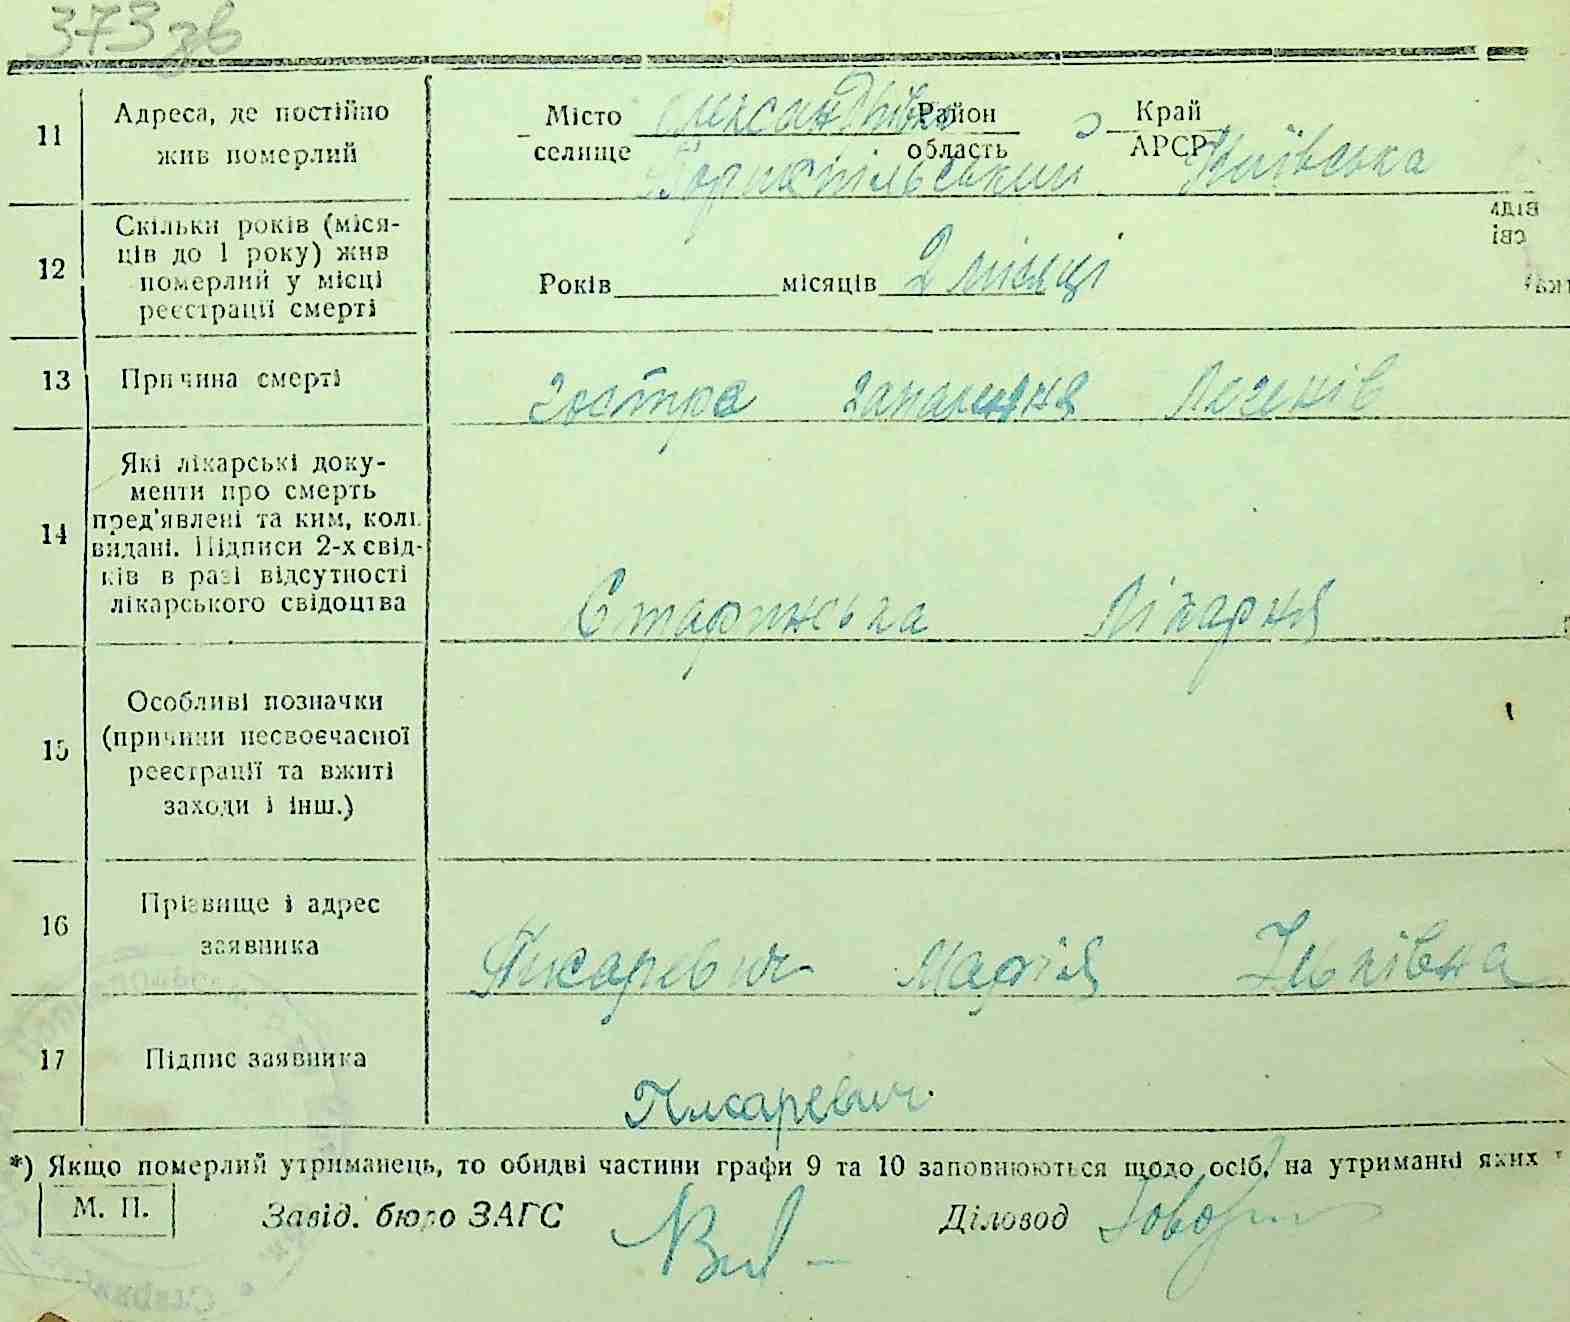 373 зв
11 Адреса, де постійно жив померлий Місто селище Олександрівка Район область Край АРСР
Бориспільський Київська
12 Скільки років (місяців до 1 року) жив померлий у місці реєстрації смерті Років місяців 2 місяці
13 Причина смерті гостра запалення Легенів
14 Які лікарські документи про смерть пред'явлені та ким, коли видані. Підписи 2-х свідків в разі відсутності лікарського свідоцтва Старинська Лікарня
15 Особливі позначки (причини несвоєчасної реєстрації та вжиті заходи і інш.)
16 Прізвище і адрес заявника Писаревич Марія Ільківна
17 Підпис заявника Писаревич
*) Якщо померлий утриманець, то обидві частини графи 9 та 10 заповнюються щодо осіб, на утриманні яких
М. П. Завід. бюро ЗАГС Діловод